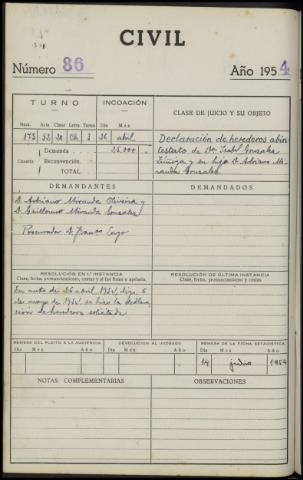 CIVIL
Número 86
Año 1954
TURNO
INCOACIÓN
CLASE DE JUICIO Y SU OBJETO
Núm. Año Clase Letra Turno Día Mes
173 52 2ª Ch 3 26 abril
Cuantía
Demanda 25.000
Reconvención.
TOTAL
Declaración de herederos abin
testato de Dª Isabel Gonzalez
y su hijo D. Adriano Mi
randa Gonzalez
DEMANDANTES
DEMANDADOS
D. Adriano Miranda y
D. Guillermo Miranda Gonzalez
Procurador D. Franco
RESOLUCIÓN EN 1.ª INSTANCIA
Clase, fecha, pronunciamiento y costas y si fué firme o apelada.
RESOLUCIÓN DE ÚLTIMA INSTANCIA
Clase, fecha, pronunciamiento y costas
En auto de 26 abril 1954, digo, 5
de mayo de 1954, se hizo la declara
ción de herederos solicitada
REMESA DEL PLEITO A LA AUDIENCIA
DEVOLUCIÓN AL JUZGADO
REMESA DE LA FICHA ESTADÍSTICA
Día Mes Año
Día Mes Año
Día Mes Año
14 julio 1954
NOTAS COMPLEMENTARIAS
OBSERVACIONES